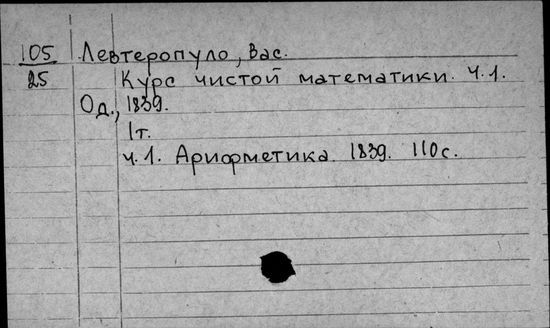 105 Левтеропуло, Вас.
25 Курс чистой математики. Ч.1.
Од., 1839.
1т.
ч.1. Арифметика. 1839. 110с.